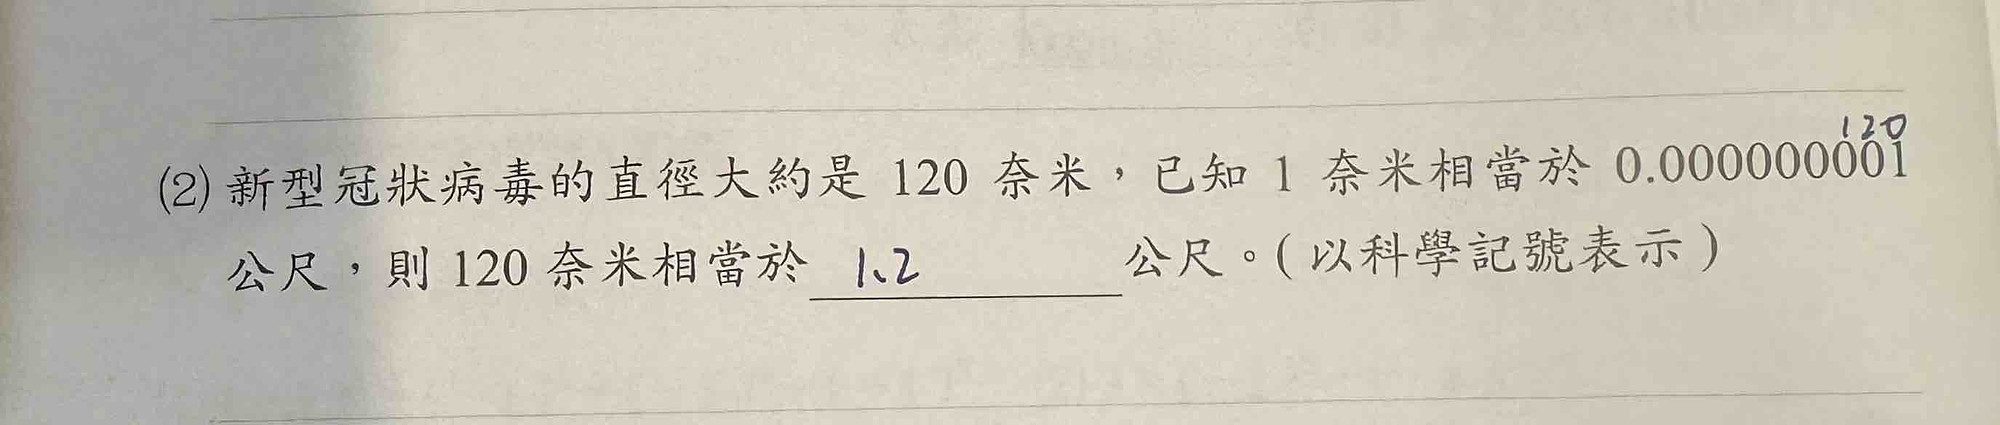 120
(2) 新型冠狀病毒的直徑大約是 120 奈米，已知 1 奈米相當於 0.000000001
公尺，則 120 奈米相當於 1.2 公尺。(以科學記號表示)